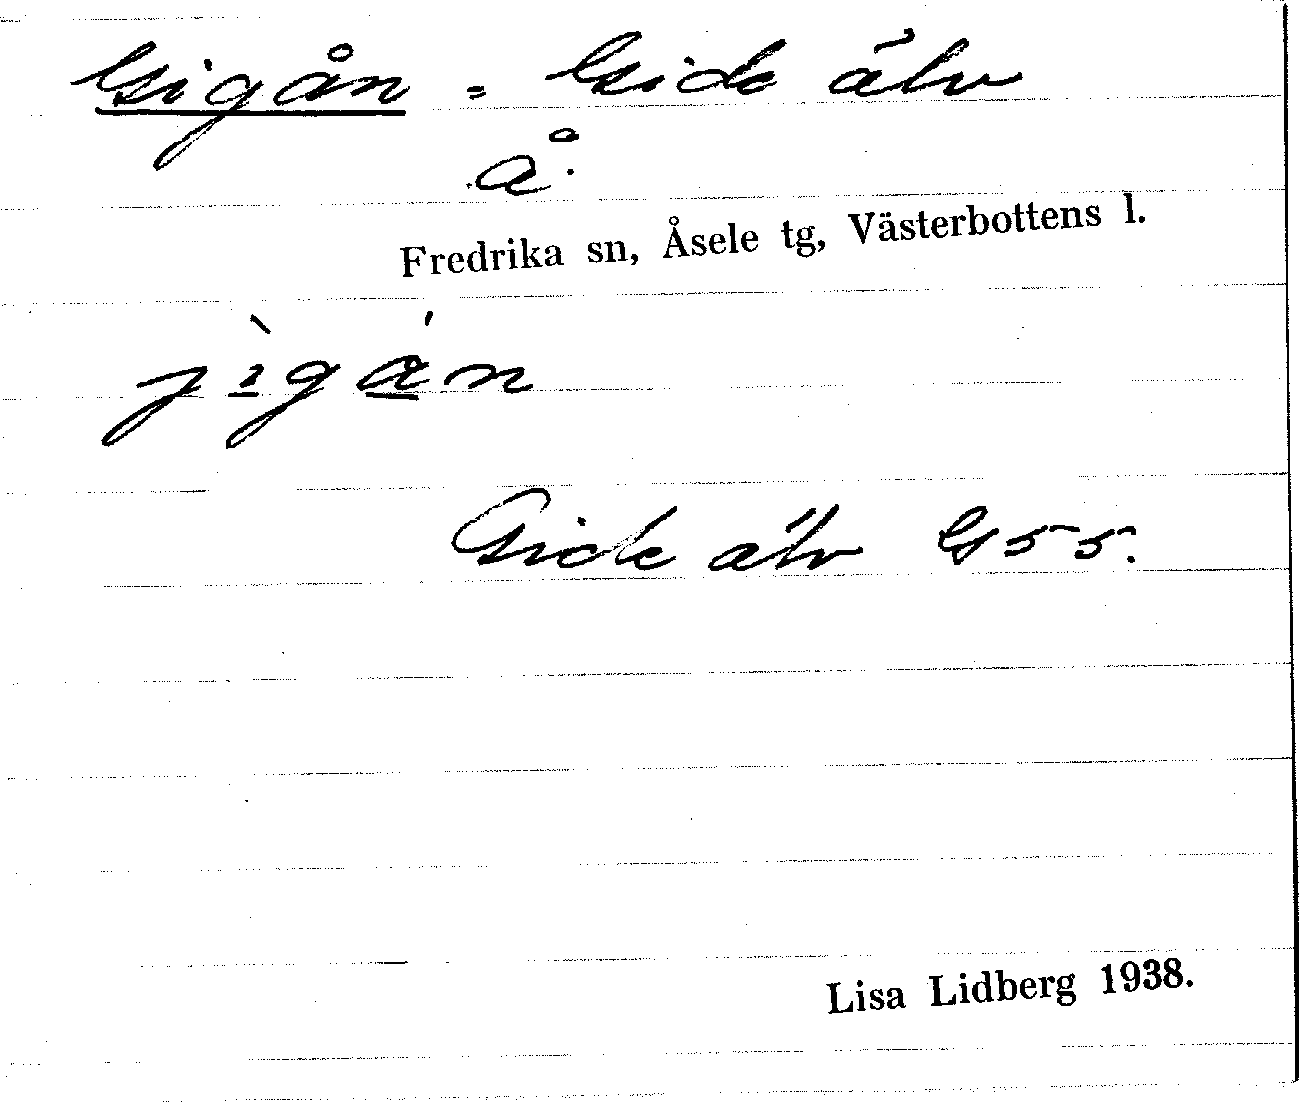 Gigån = Gide älv
å.
Fredrika sn, Åsele tg, Västerbottens l.
jìgán
Gide älv G55.
Lisa Lidberg 1938.